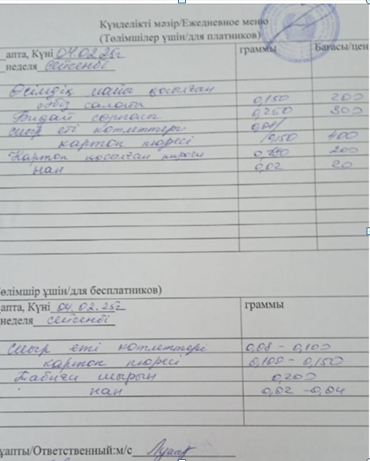 Күнделікті мәзір/Ежедневное меню
(Төлімшілер үшін/для платников)
апта, Күні 04.02.25г граммы Бағасы/цен
неделя сейсенбі
Өсімдік майы қосылған
сәбіз салаты 0,150 200
сорпасы 0,250 300
сиыр еті котлеттері 0,08/
картоп пюресі 0,150 400
Картоп қосылған 200
нан 0,02 20
өлімшір үшін/для бесплатников)
апта, Күні 04.02.25г граммы
неделя сейсенбі
сиыр еті котлеттері 0,08 - 0,100
картоп пюресі 0,100 - 0,150
Табиғи шырын 0,200
нан 0,02 - 0,04
уапты/Ответственный:м/с